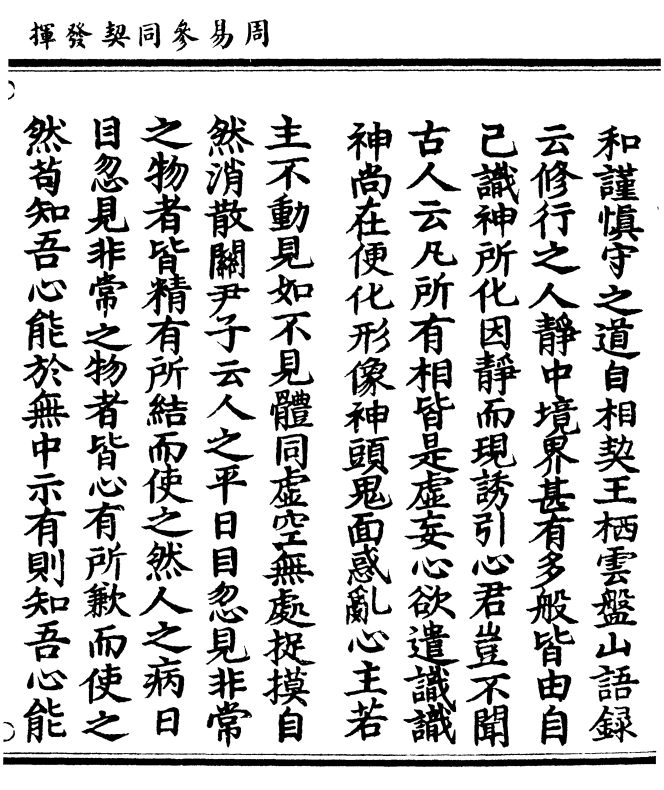 周易參同契發揮
和謹慎守之道自相契王栖雲盤山語録
云修行之人靜中境界甚有多般皆由自
己識神所化因靜而現誘引心君豈不聞
古人云凡所有相皆是虛妄心欲遣識識
神尚在便化形像神頭鬼面惑亂心主若
主不動見如不見體同虛空無處捉摸自
然消散關尹子云人之平日目忽見非常
之物者皆精有所結而使之然人之病日
目忽見非常之物者皆心有所歉而使之
然苟知吾心能於無中示有則知吾心能